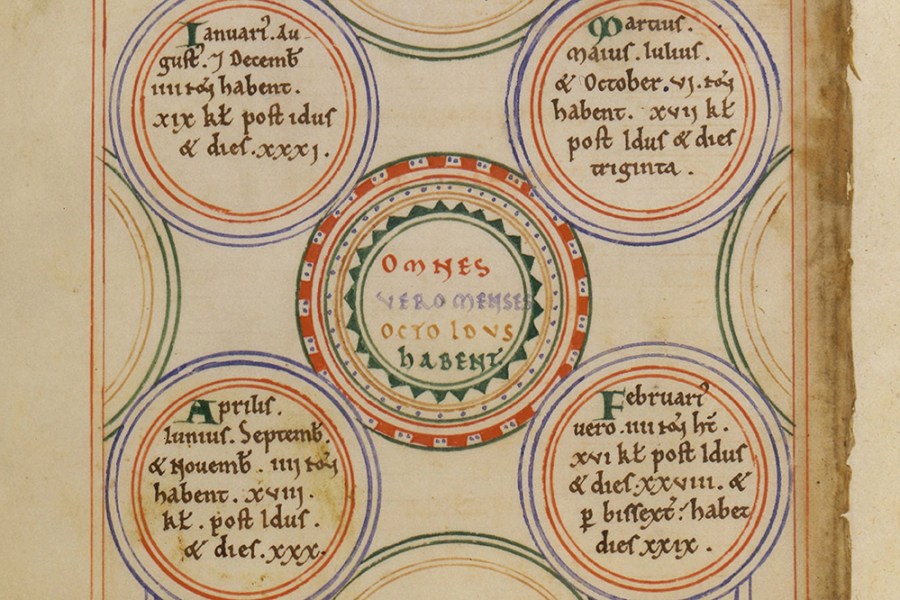 Ianuariꝰ. Au
gustꝰ. ⁊ Decemb̄
iiii noꝝ habent.
xix kł post idus
& dies.xxxj.
Martius.
Maius. Iulius.
& October. vj. noꝝ
habent. xvij kł
post Idus & dies
triginta.
OMNES
VERO MENSES
OCTO IDVS
hABENT
Aprilis.
Iunius. Septemb̄.
& Nouemb̄. iiij noꝝ
habent. xviij.
kł. post Idus.
& dies.xxx.
Februariꝰ
uero.iiii noꝝ hn̄t.
xvi kł post Idus
& dies.xxviii. &
ꝑ bissext̄. habet
dies xxix.